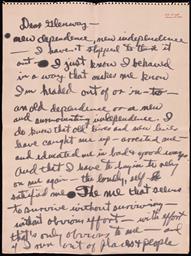 Dear Glenway—
new dependence, new independence
I haven't stopped to think it
out— I just know I behaved
in a way that makes me know
I'm headed out of or into—
an old dependence or a new
and independence. I
do know that old lives and new lives
have caught me up— and
and educated me in bad & good ways
And that I have to begin to rely
on me again— the lonely, self-
satisfied me— the me that seems
to survive without surviving—
without obvious effort— with effort
that's only obvious to me— and
if I run out of places & people